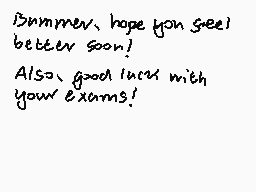 Bummer, hope you feel
better soon!
Also, good luck with
your exams!